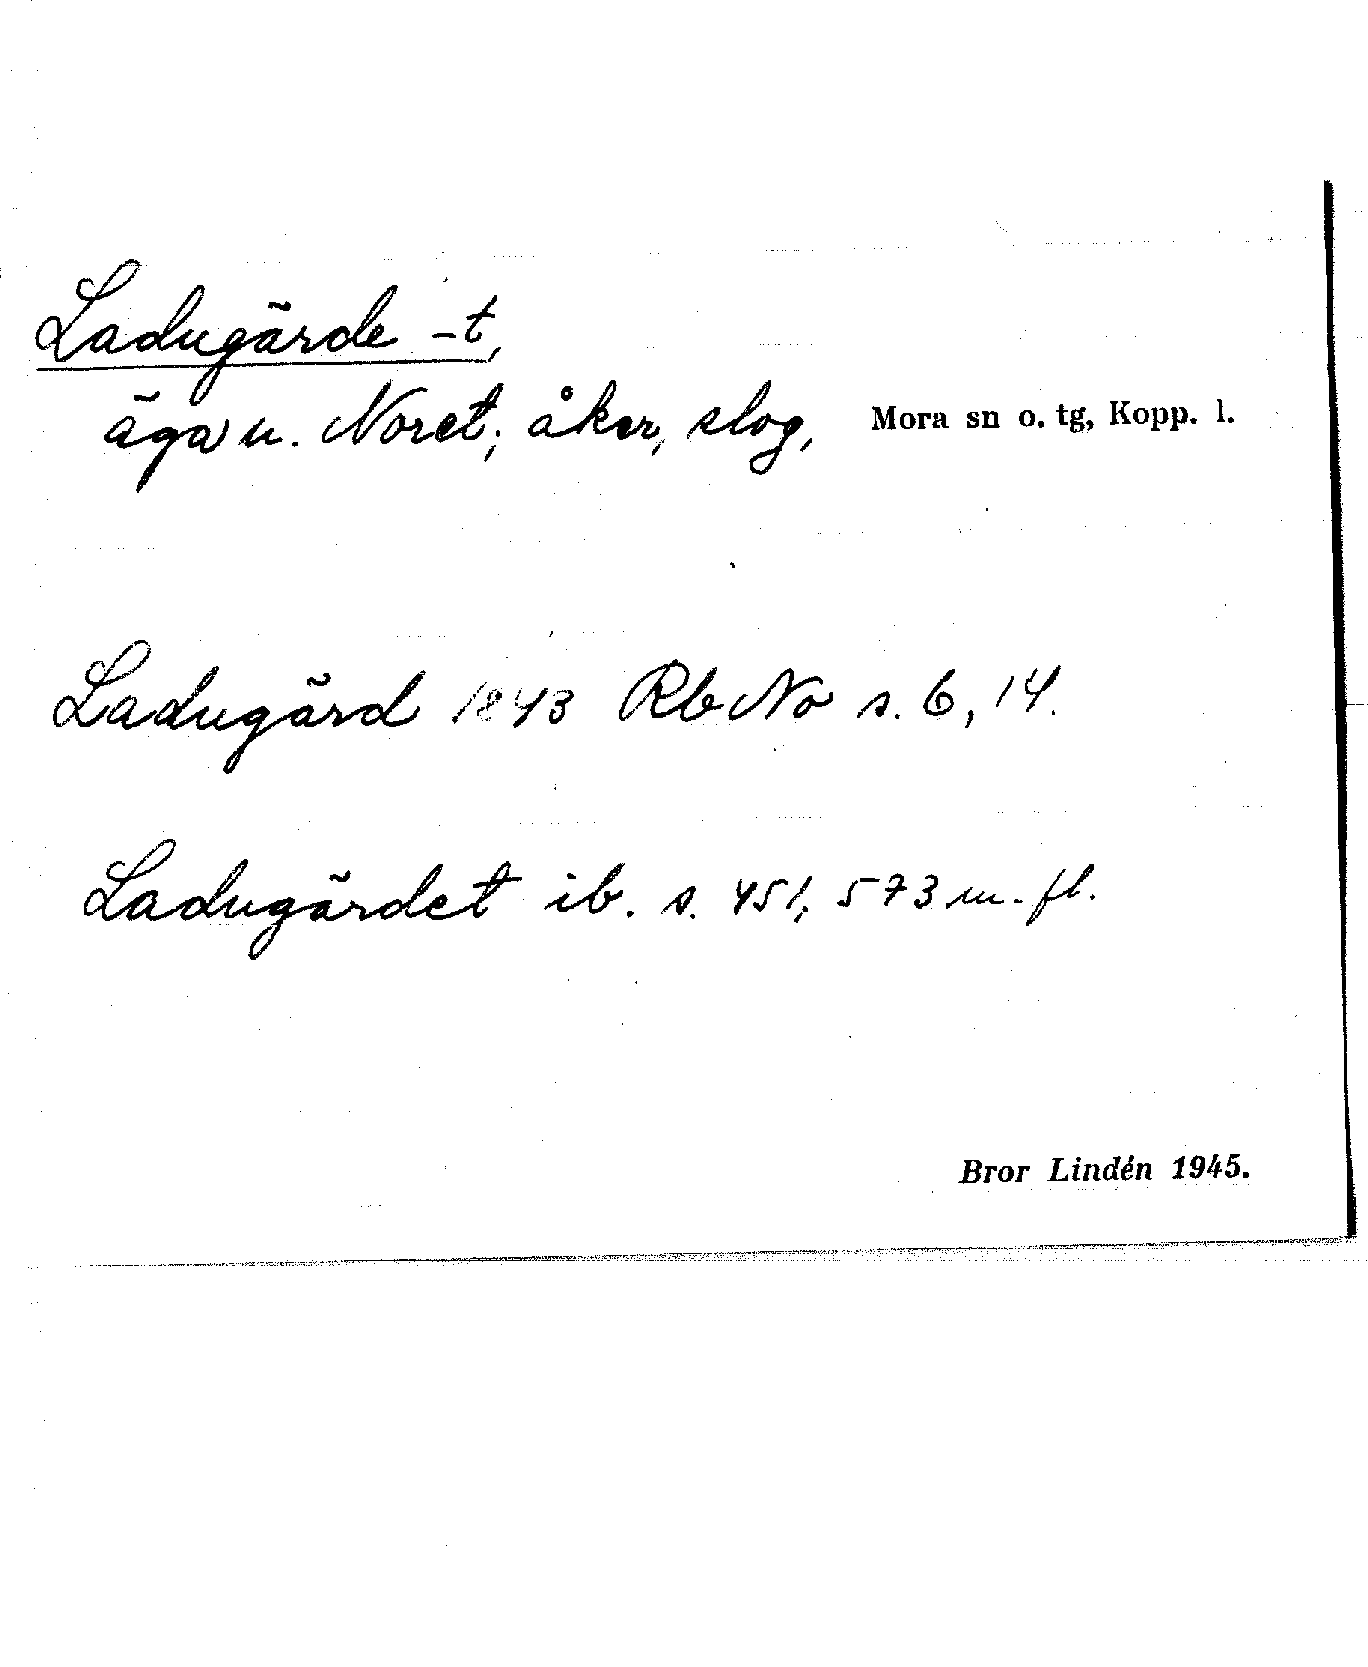 Ladugärde -t,
äga u. Noret; åker, slog, Mora sn o. tg, Kopp. l.
Ladugärd 1843 Rb No s. 6, 14.
Ladugärdet ib. s. 451, 573 m. fl.
Bror Lindén 1945.